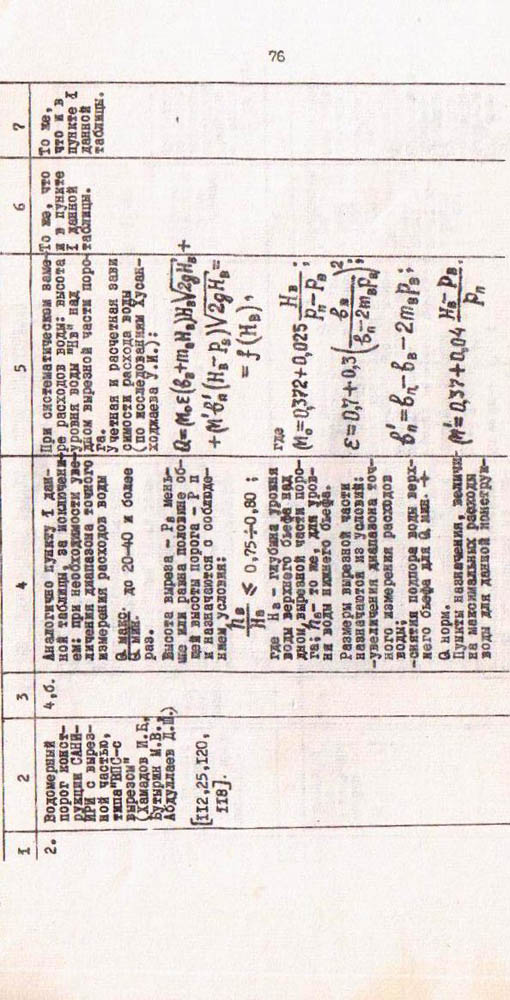 76
1
2
3
4
5
6
7
2.
Водомерный
порог конст-
рукции САНИ-
ИРИ с вырез-
ной частью,
типа "ВПС-с
вырезом"
(Хамадов И.Б.,
Бутырин М.В.,
Абдуллаев Д.Ш.)
[112,25,120,
118].
4,б.
Аналогично пункту 1 дан-
ной таблицы, за исключени-
ем: при необходимости уве-
личения диапазона точного
измерения расходов воды
Q макс.
Q мин. до 20-40 и более
раз.
Высота выреза - Р, мень-
ше или равна половине об-
щей высоты порога - Р п
и назначаются с соблюде-
нием условия:
hв/Hв ≤ 0,75÷0,80 ;
где Hв - глубина уровня
воды верхнего бьефа над
дном вырезной части поро-
га; hв - то же, для уров-
ня воды нижнего бьефа.
Размеры вырезной части
назначаются из условий:
-увеличения диапазона точ-
ного измерения расходов
воды;
-снятия подпора воды верх-
него бьефа для Q мин. ÷
Q норм.
Пункты назначения, величи-
на максимальных расходы
воды для данной конструк-
При систематическом заме-
ре расходов воды: высота
уровня воды "Нв" над
дном вырезной части поро-
га.
Учетная и расчетная зави
симости расхода воды
(по исследованиям Хусан-
ходжаева У.И.):
Q=M₀ε(bв+mвHв)Hв√2gHв +
+M'b'п(Hв-Pв)√2gHв =
= f(Hв),
где
M₀=0,372+0,025 Hв/(Pп-Pв) ;
ε=0,7+0,3(bв/(bп-2mвPв))² ;
b'п=bп-bв-2mвPв ;
M'=0,37+0,04 (Hв-Pв)/Pп
То же, что
и в пункте
1 данной
таблицы.
То же,
что и в
пункте 1
данной
таблицы.